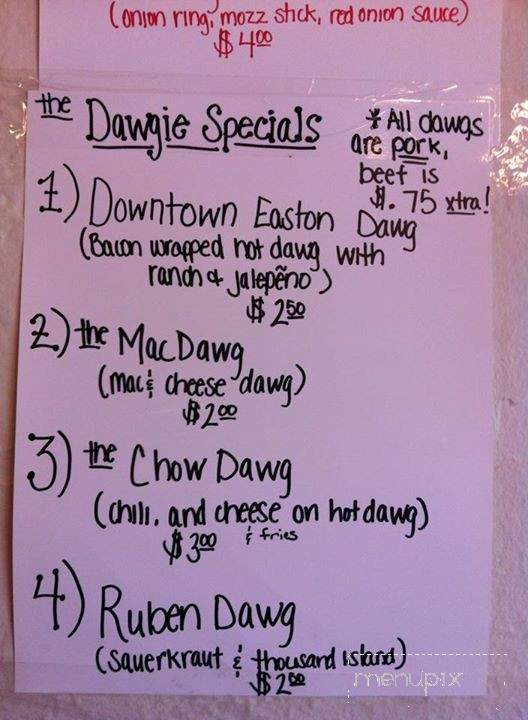 (onion ring, mozz stick, red onion sauce)
$4.00
the Dawgie Specials
* All dawgs
are pork,
beef is
$.75 xtra!
1) Downtown Easton Dawg
(Bacon wrapped hot dawg with
ranch & jalepẽno)
$2.50
2) the Mac Dawg
(mac & cheese dawg)
$2.00
3) the Chow Dawg
(chili, and cheese on hot dawg)
& fries
$3.00
4) Ruben Dawg
(Sauerkraut & thousand island)
$2.50
menupix